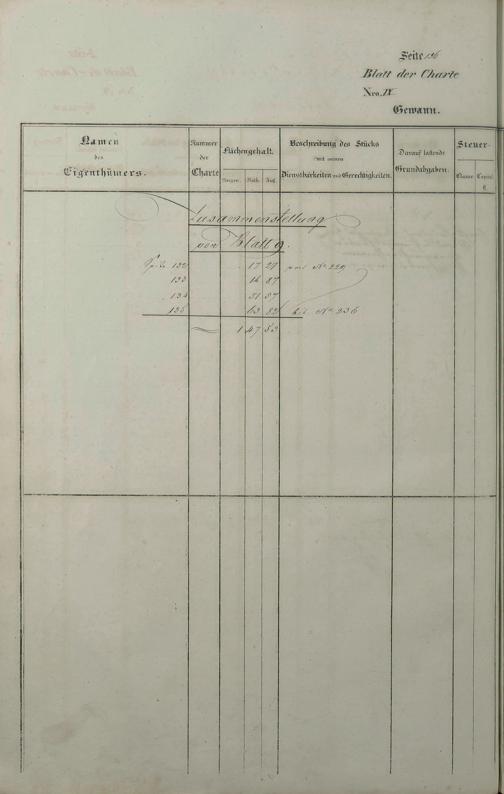 Seite 136
Blatt der Charte
Nro. IX
Gewann.
Namen des Eigenthümers.
Nummer der Charte
Flächengehalt.
Morgen. Ruth. Fuß.
Beschreibung des Stücks mit seinen Dienstbarkeiten und Gerechtigkeiten.
Darauf lastende Grundabgaben.
Steuer-
Classe Capital
Zusammenstellung
von Blatt 9.
Seite 132 17 29 von No. 229
133 14 87
134 31 57
135 13 82 bis No. 236
1 47 53